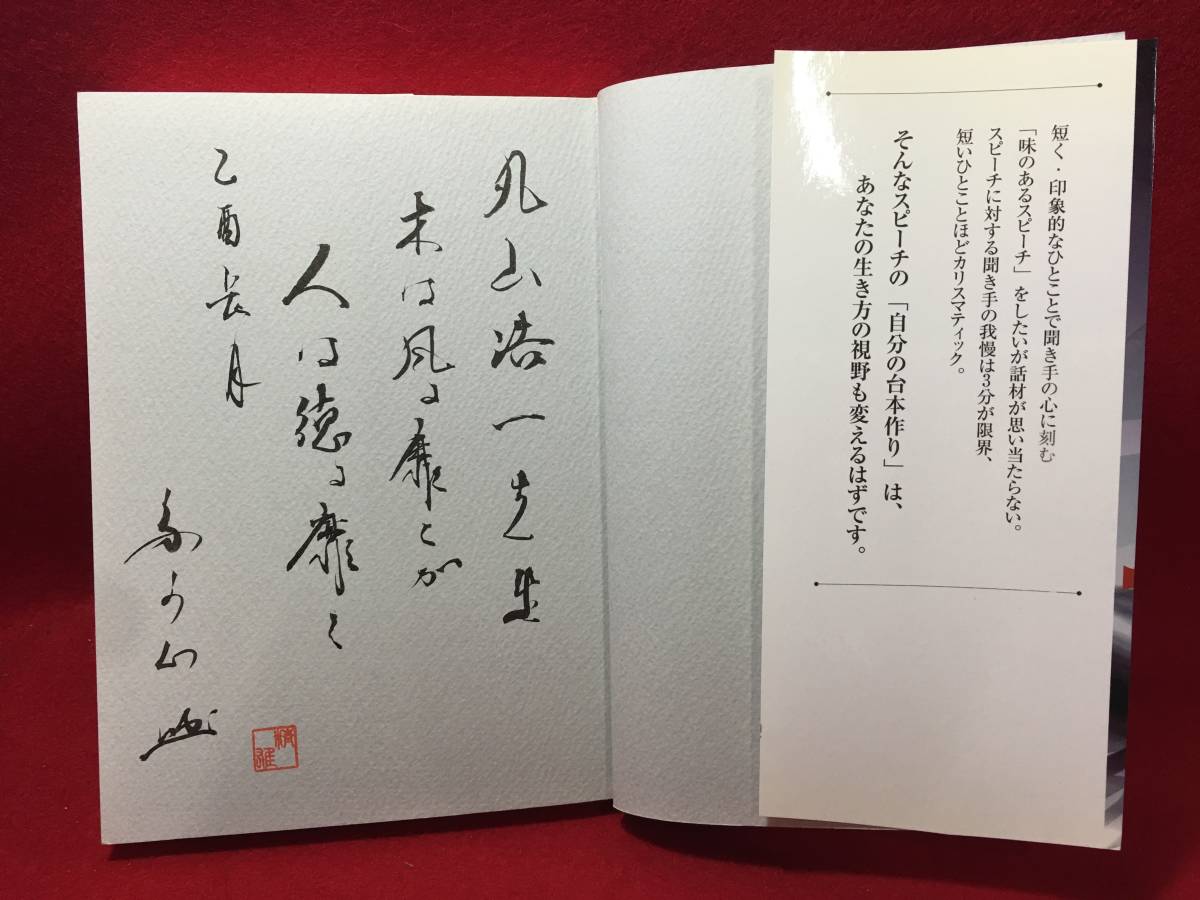 短く・印象的なひとことで聞き手の心に刻む
「味のあるスピーチ」をしたいが話材が思い当たらない。
スピーチに対する聞き手の我慢は3分が限界、
短いひとことほどカリスマティック。
そんなスピーチの「自分の台本作り」は、
あなたの生き方の視野も変えるはずです。
丸山浩一先生
木は風に靡くが
人は徳に靡く
乙酉長月